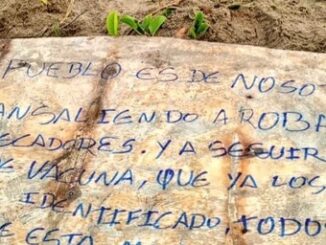 PUEBLO ES DE NOSO
ANSALIENDO A ROBA
ECADORES. YA SEGUIR
DE VACUNA, QUE YA LOS
IDENTIFICADO, TODO
E ESTA